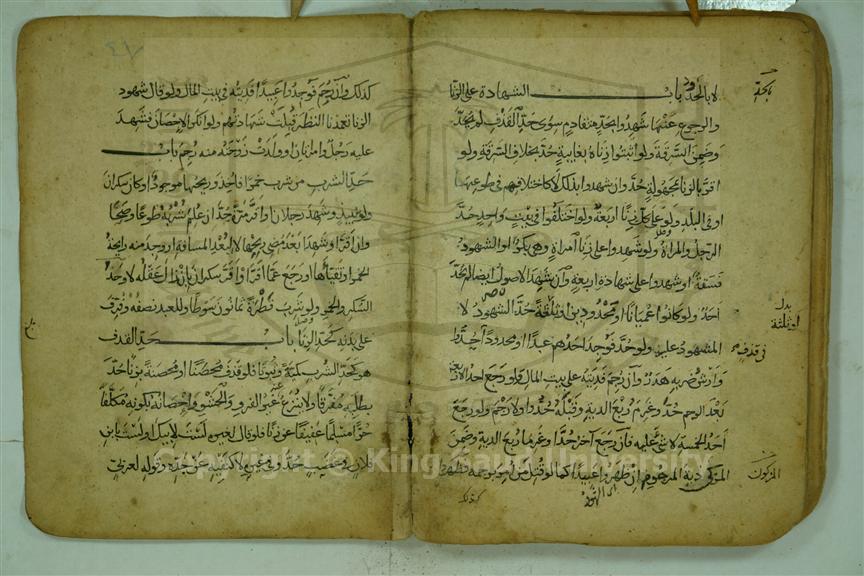 لا بالخدود باب الشهادة على الزنا
والرجوع عنها شهدوا بحد متقادم سوى حد القذف لم يحد
وضمن السرقة ولو اثبتوا زناه بغايبة حد بخلاف السرقة ولو
اقر بالزنا بمجهولة حد وان شهدوا بذلك لا كاختلافهم في طوعها
او في البلد ولو على كل زنا اربعة ولو اختلفوا في بيت واحد حد
الرجل والمراة ولو شهدوا على زنا امراة وهي بكر او الشهود
فسقة او شهدوا على شهادة اربعة وان شهد الاصول ايضا لم يحد
احد ولو كانوا عميانا او محدودين او ثلثة حد الشهود لا
المشهود عليه ولو حد فوجد احدهم عبدا او محدودا حدوا
وارش ضربه هدر وان رجم فديته على بيت المال ولو رجع احد الاربعة
بعد الرجم حد وغرم ربع الدية وقبله حدوا ولا رجم ولو رجع
احد الخمسة لا شي عليه فان رجع اخر حدا وغرما ربع الدية وضمن
المزكي دية المرجوم ان ظهروا عبيدا كما لو قتل من امر برجمه فظهروا
كذلك
بدل
او ثلثة
في قذف
المزكون
٤٧
كذلك وان رجم فوجدوا عبيدا فديته في بيت المال ولو قال شهود
الزنا تعمدنا النظر قبلت شهادتهم ولو انكر الاحصان فشهد
عليه رجل وامراتان او ولدت زوجته منه رجم باب
حد الشرب من شرب خمرا فاخذ وريحها موجود او كان سكران
ولو بنبيذ وشهد رجلان او اقر مرة حد ان علم شربه طوعا وصحا
وان اقر او شهدا بعد مضي ريحها لا لبعد المسافة او وجد منه رايحة
الخمر او تقياها او رجع عما اقر او اقر سكران بان زال عقله لا وحد
السكر والخمر ولو شرب قطرة ثمانون سوطا وللعبد نصفه وفرق
على بدنه كحد الزنا باب حد القذف
هو كحد الشرب كمية وثبوتا فلو قذف محصنا او محصنة بزنا حد
بطلبه مفرقا ولا ينزع عنه غير الفرو والحشو واحصانه بكونه مكلفا
حرا مسلما عفيفا عن زنا فلو قال لغيره لست لابيك او لست بابن
فلان في غضب حد وفي غيره لا كنفيه عن جده وقوله لعربي